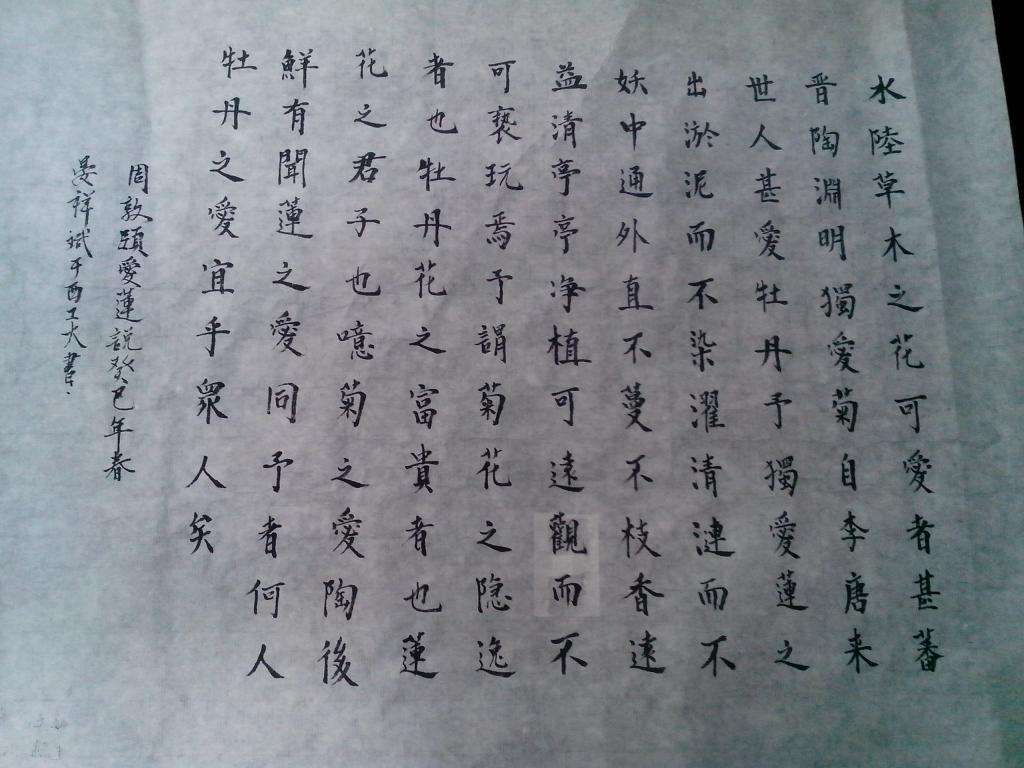 水陸草木之花可愛者甚蕃
晋陶淵明獨愛菊自李唐来
世人甚愛牡丹予獨愛蓮之
出淤泥而不染濯清漣而不
妖中通外直不蔓不枝香遠
益清亭亭净植可遠觀而不
可褻玩焉予謂菊花之隐逸
者也牡丹花之富貴者也蓮
花之君子也噫菊之愛陶後
鮮有聞蓮之愛同予者何人
牡丹之愛宜乎眾人矣
周敦頤愛蓮説癸巳年春
晏祥斌于西工大書